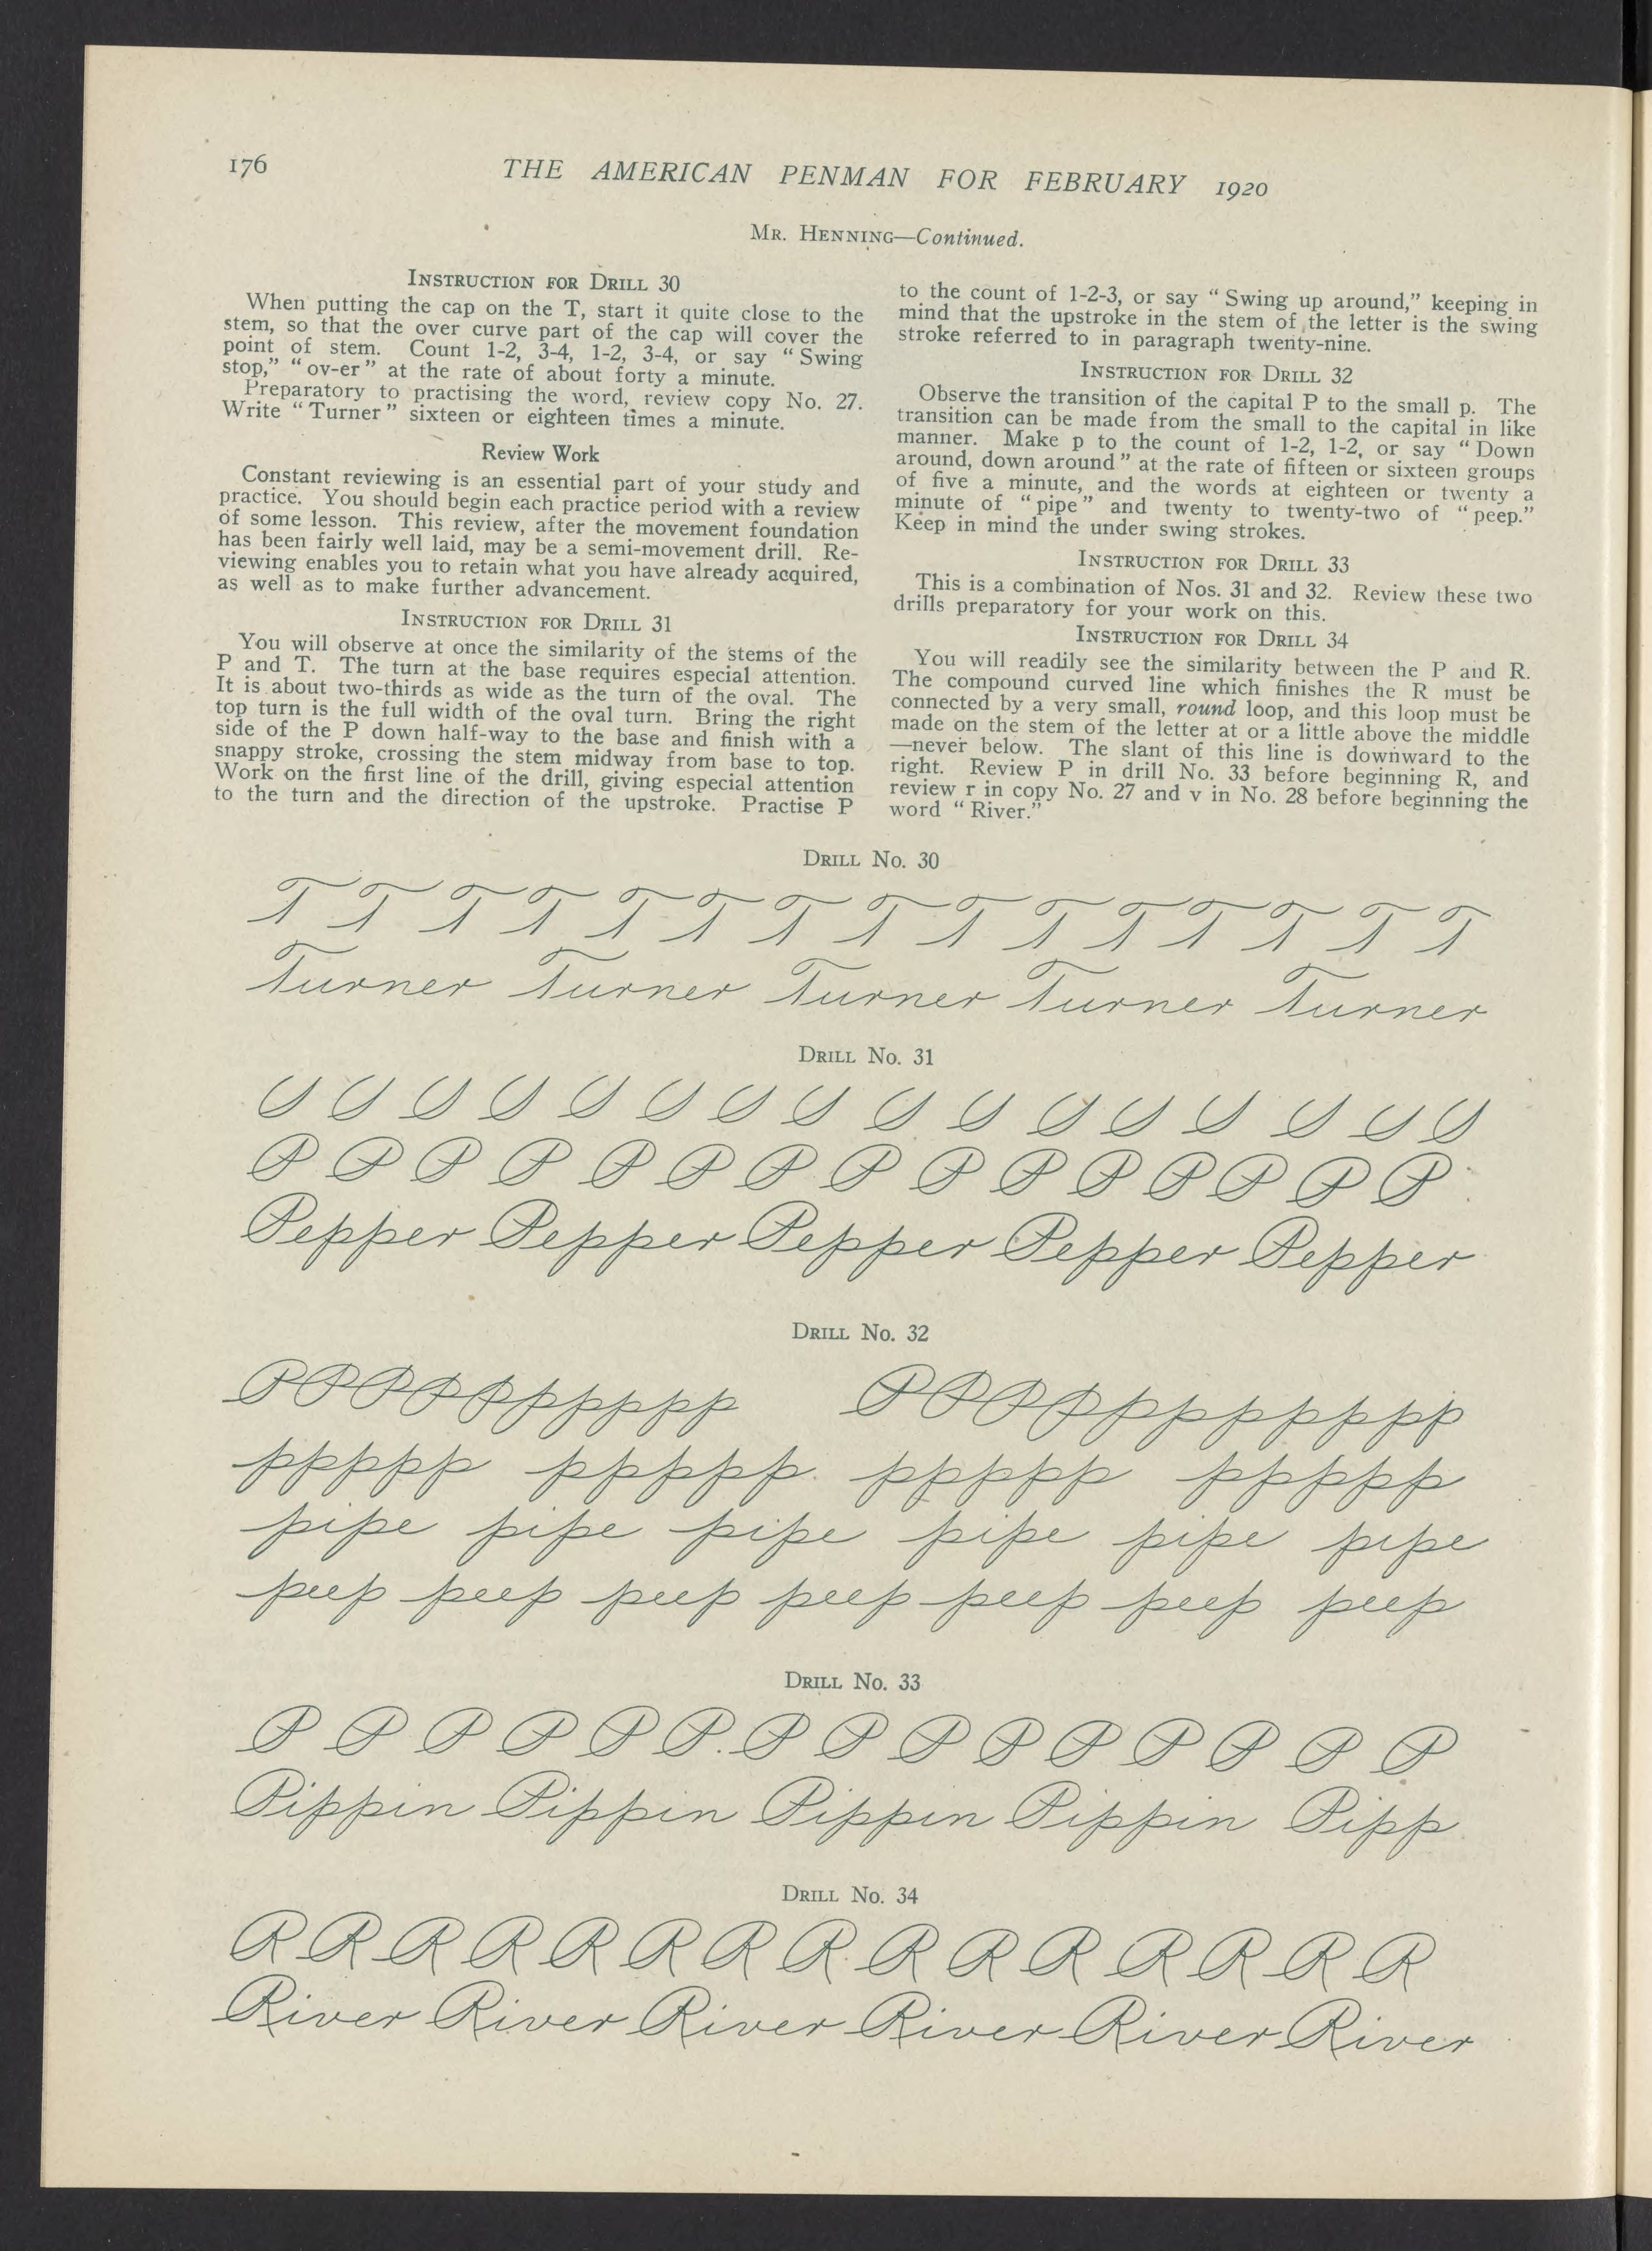 176
THE AMERICAN PENMAN FOR FEBRUARY 1920
MR. HENNING—Continued.
INSTRUCTION FOR DRILL 30
When putting the cap on the T, start it quite close to the
stem, so that the over curve part of the cap will cover the
point of stem. Count 1-2, 3-4, 1-2, 3-4, or say “Swing
stop,” “ov-er” at the rate of about forty a minute.
Preparatory to practising the word, review copy No. 27.
Write “Turner” sixteen or eighteen times a minute.
Review Work
Constant reviewing is an essential part of your study and
practice. You should begin each practice period with a review
of some lesson. This review, after the movement foundation
has been fairly well laid, may be a semi-movement drill. Re-
viewing enables you to retain what you have already acquired,
as well as to make further advancement.
INSTRUCTION FOR DRILL 31
You will observe at once the similarity of the stems of the
P and T. The turn at the base requires especial attention.
It is about two-thirds as wide as the turn of the oval. The
top turn is the full width of the oval turn. Bring the right
side of the P down half-way to the base and finish with a
snappy stroke, crossing the stem midway from base to top.
Work on the first line of the drill, giving especial attention
to the turn and the direction of the upstroke. Practise P
to the count of 1-2-3, or say “Swing up around,” keeping in
mind that the upstroke in the stem of the letter is the swing
stroke referred to in paragraph twenty-nine.
INSTRUCTION FOR DRILL 32
Observe the transition of the capital P to the small p. The
transition can be made from the small to the capital in like
manner. Make p to the count of 1-2, 1-2, or say “Down
around, down around” at the rate of fifteen or sixteen groups
of five a minute, and the words at eighteen or twenty a
minute of “pipe” and twenty to twenty-two of “peep.”
Keep in mind the under swing strokes.
INSTRUCTION FOR DRILL 33
This is a combination of Nos. 31 and 32. Review these two
drills preparatory for your work on this.
INSTRUCTION FOR DRILL 34
You will readily see the similarity between the P and R.
The compound curved line which finishes the R must be
connected by a very small, round loop, and this loop must be
made on the stem of the letter at or a little above the middle
—never below. The slant of this line is downward to the
right. Review P in drill No. 33 before beginning R, and
review r in copy No. 27 and v in No. 28 before beginning the
word “River.”
DRILL No. 30
T T T T T T T T T T T T T T T
Turner Turner Turner Turner Turner
DRILL No. 31
P P P P P P P P P P P P P P P
Pepper Pepper Pepper Pepper Pepper
DRILL No. 32
PPPPPpppppp PPPPpppppppp
ppppp ppppp ppppp ppppp
pipe pipe pipe pipe pipe pipe
peep peep peep peep peep peep peep
DRILL No. 33
P P P P P P P P P P P P P P P
Pippin Pippin Pippin Pippin Pipp
DRILL No. 34
R R R R R R R R R R R R R R R
River River River River River River